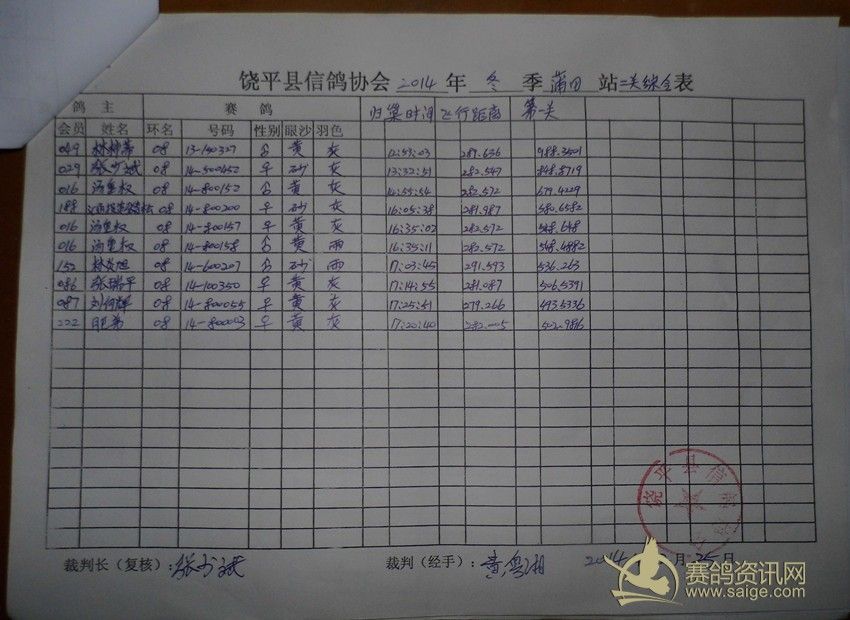 饶平县信鸽协会 2014 年 冬 季 莆田 站 二关综合表
鸽 主 赛 鸽 归巢时间 飞行距离 第一关
会员 姓名 环名 号码 性别 眼沙 羽色
049 08 13-150327 合 黄 灰 12:59:03 287.636 988.3501
029 张少斌 08 14-500452 早 砂 灰 13:32:51 282.547 848.8719
016 汤重权 08 14-800152 合 黄 灰 14:55:54 282.572 679.4229
188 08 14-800200 早 砂 灰 16:05:38 281.987 580.6582
016 汤重权 08 14-800157 早 黄 灰 16:35:02 282.572 548.648
016 汤重权 08 14-800158 合 黄 雨 16:35:11 282.572 548.4882
152 林炎旭 08 14-600207 合 砂 雨 17:03:45 291.593 536.263
086 张瑞平 08 14-100350 早 黄 灰 17:14:55 281.087 506.5391
087 刘向辉 08 14-800055 早 黄 灰 17:25:51 279.266 493.5336
222 肥弟 08 14-800003 早 黄 灰 17:20:40 502.986
饶平县信鸽
裁判长（复核）：张少斌 裁判（经手）：黄粤湘 2014 月 25 日
赛鸽资讯网
www.saige.com